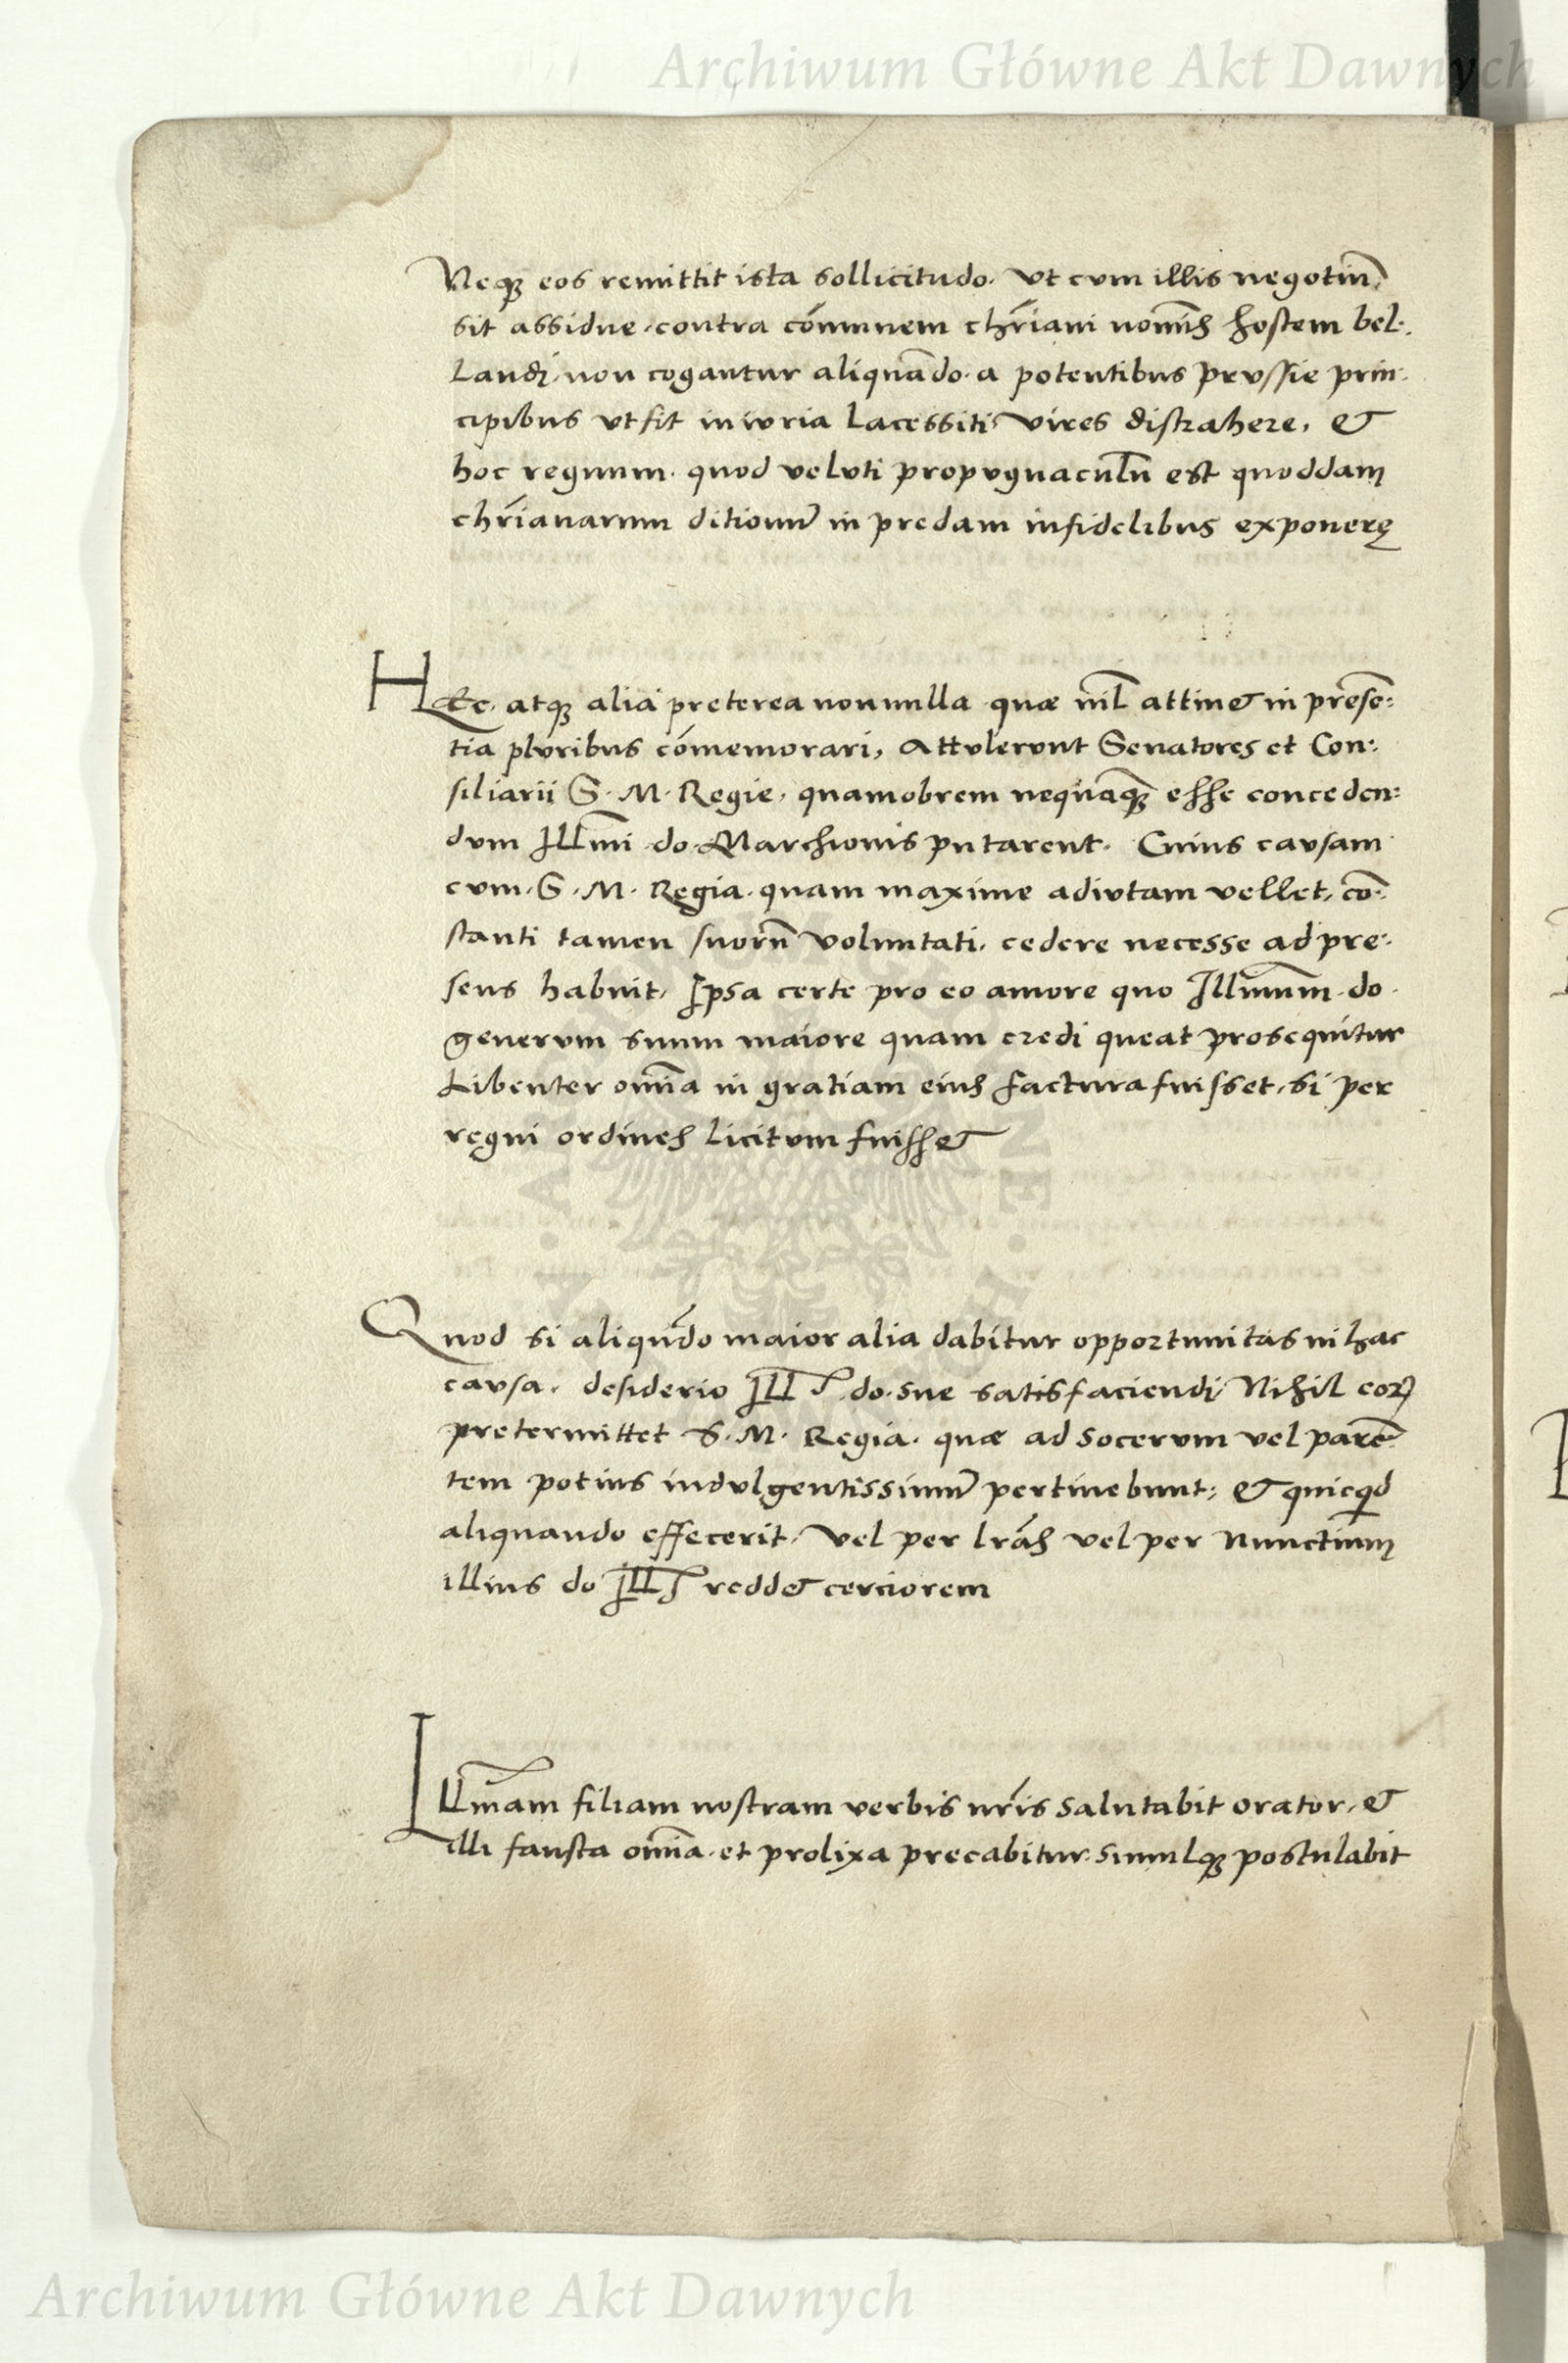 Archiwum Główne Akt Dawnych
Neqꝫ eos remittit ista sollicitudo. Ut cum illis negotiū,
sit assidue, contra cōmunem chr̄iani nomīs hostem bel:
landi, non cogantur aliquādo a potentibus prussie prin:
cipibus ut fit iniuria lacessiti, vires distrahere, &
hoc regnum quod veluti propugnaculū est quoddam
chr̄ianarum ditionū in predam infidelibus exponere
Hæc atqꝫ alia preterea nonnulla quæ nil̄ attin& in presē:
tia pluribus cōmemorari, Attulerunt Senatores et Con:
siliarii S. M. Regie, quamobrem nequāqꝫ esse conceden:
dum Illm̄i do. Marchionis putarent. Cuius causam
cum S. M. Regia quam maxime adiutam vellet, cō:
stanti tamen suorū voluntati, cedere necesse ad pre:
sens habuit, Ipsa certe pro eo amore quo Illm̄um do.
generum suum maiore quam credi queat prosequitur
Libenter om̄ia in gratiam eius factura fuisset, si per
regni ordines licitum fuiss&
Quod si aliqn̄do maior alia dabitur opportunitas in hac
causa, desiderio Ill do. sue satisfaciendi, Nihil eoꝝ
pretermittet S. M. Regia. quæ ad socerum vel parē
tem potius indulgentissimū pertinebunt; & quicqͥd
aliquando effecerit, Vel per lr̄as vel per Nunctium
illius do Ill redd& cerciorem
Illm̄am filiam nostram verbis nr̄is salutabit orator, &
illi fausta om̄ia et prolixa precabitur simulqꝫ postulabit
Archiwum Główne Akt Dawnych